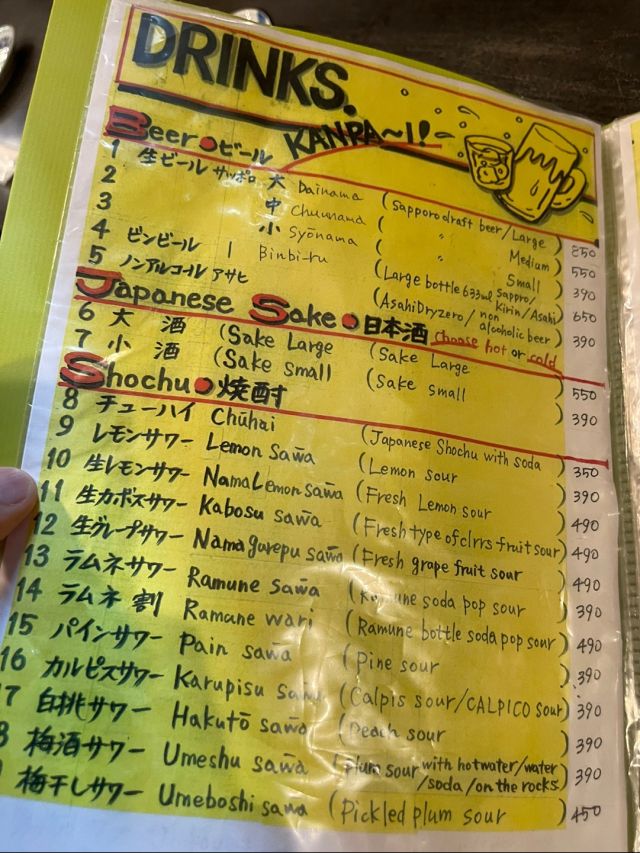 DRINKS.
KANPA~I!
Beer●ビール
1 生ビール サッポロ 大 Dainama (Sapporo draft beer/Large) 850
2 中 Chuunama ( 〃 Medium) 550
3 小 Syōnama ( 〃 Small) 390
4 ビンビール | Binbi-ru (Large bottle 633ml Sapporo/Kirin/Asahi) 650
5 ノンアルコール アサヒ (AsahiDryzero/non alcoholic beer) 390
Japanese Sake●日本酒 choose hot or cold
6 大 酒 (Sake Large (Sake Large) 550
7 小 酒 (Sake small (Sake small) 390
Shochu●焼酎
8 チューハイ Chūhai (Japanese Shochu with soda) 350
9 レモンサワー Lemon sawa (Lemon sour) 390
10 生レモンサワー NamaLemon sawa (Fresh Lemon sour) 490
11 生カボスサワー Kabosu sawa (Fresh type of clrrs fruit sour) 490
12 生グレープサワー Namagurepu sawa (Fresh grape fruit sour) 490
13 ラムネサワー Ramune sawa (Ramune soda pop sour) 390
14 ラムネ 割 Ramune wari (Ramune bottle soda pop sour) 490
15 パインサワー Pain sawa (Pine sour) 390
16 カルピスサワー Karupisu sawa (Calpis sour/CALPICO sour) 390
7 白桃サワー Hakutō sawa (Peach sour) 390
8 梅酒サワー Umeshu sawa (Plum sour with hotwater/water/soda/on the rocks) 390
梅干しサワー Umeboshi sawa (Pickled plum sour) 450